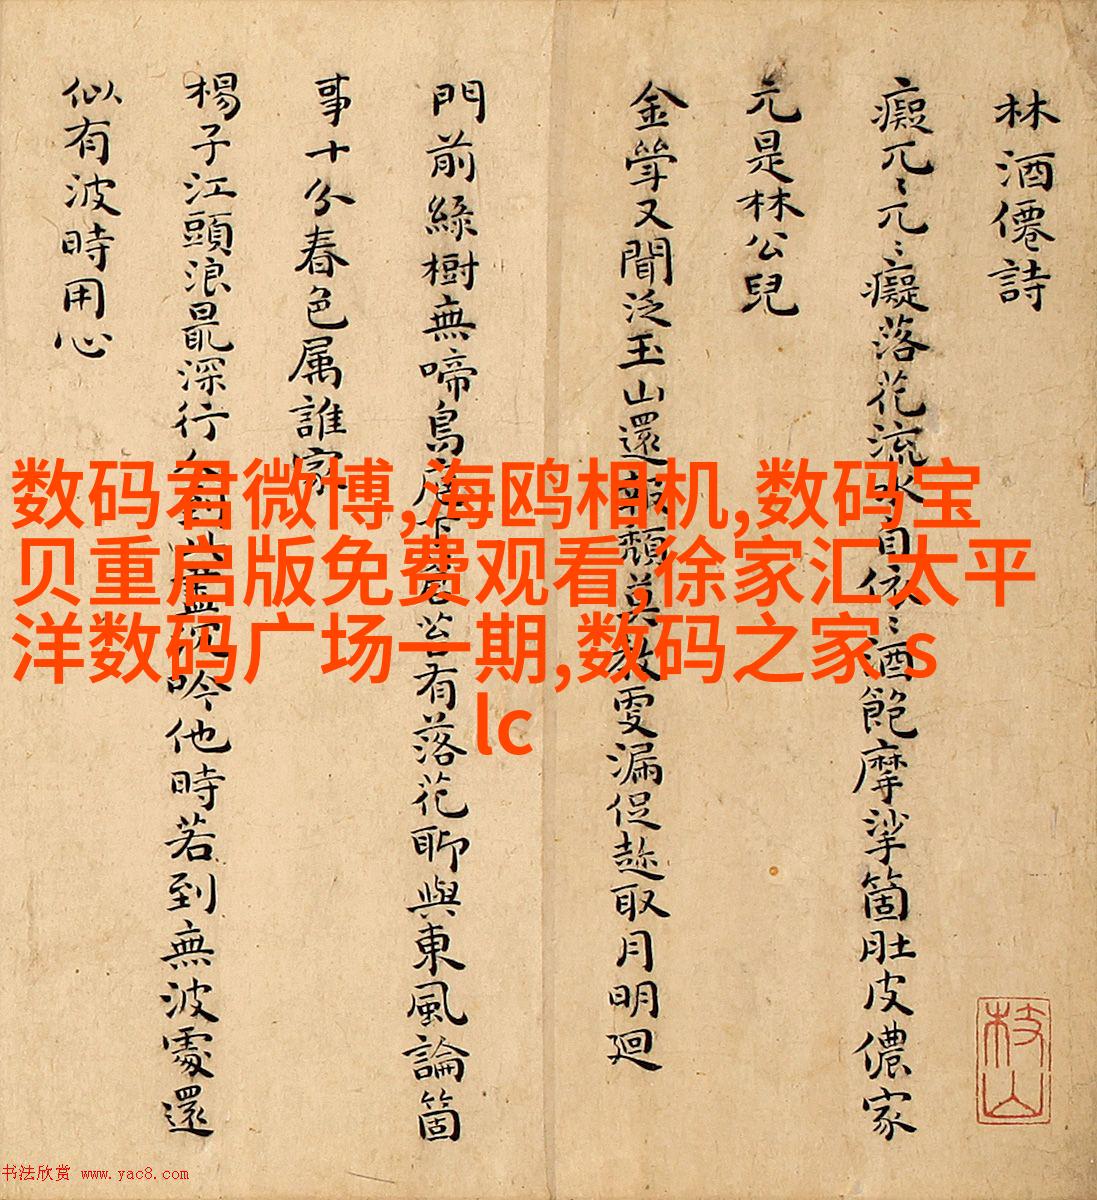 林酒僊詩
癡兀〻兀〻癡落花流水自依〻酒飽摩挲箇肚皮儂家
元是林公兒
金斝又聞泛玉山還報頹莫教更漏促趂取月明廻
門前綠樹無啼鳥庭下蒼公有落花聊與東風論箇
事十分春色属誰家
楊子江頭浪最深行沉吟他時若到無波處還
似有波時用心
枝山
数码君微博,海鸥相机,数码宝
贝重启版免费观看,徐家汇太平
洋数码广场一期,数码之家 s
lc
书法欣赏 www.yac8.com